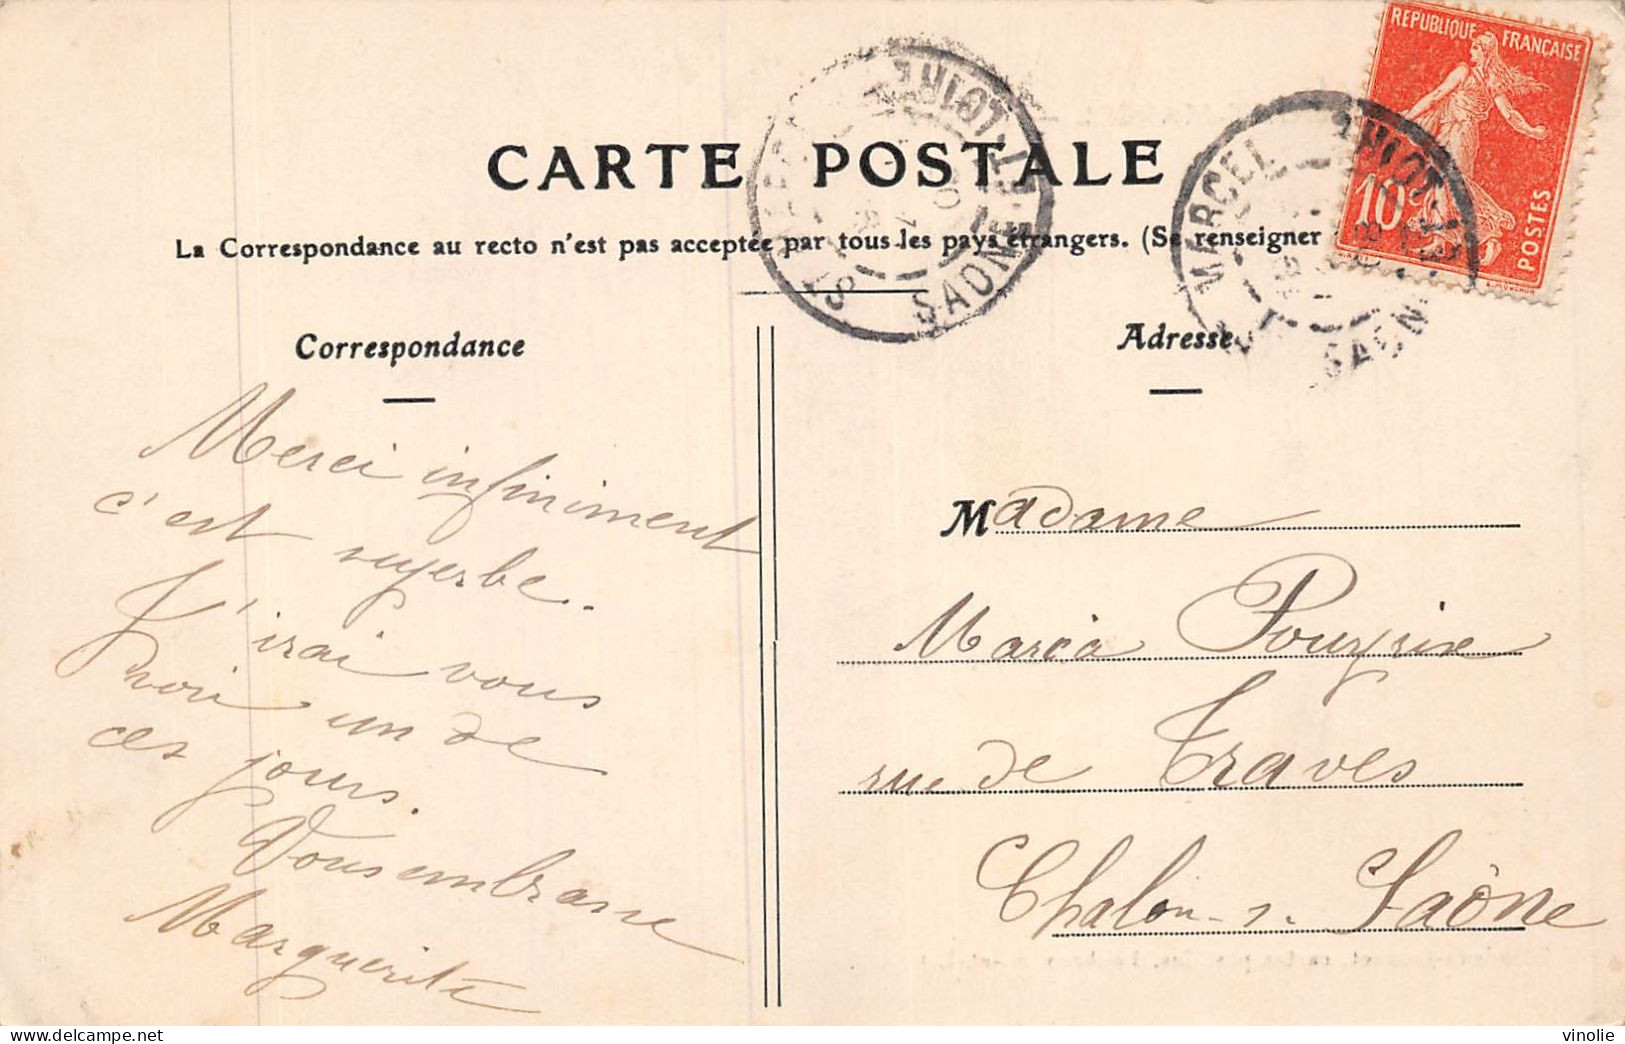 CARTE POSTALE
La Correspondance au recto n'est pas acceptée par tous les pays étrangers. (Se renseigner
REPUBLIQUE FRANÇAISE
10c
POSTES
ST MARCEL
SAONE-ET-LOIRE
MARCEL
SAONE-ET-LOIRE
Correspondance
Merci infiniment
c'est superbe.
J'irai vous
voir un de
ces jours.
Vous embrasse
Marguerite
Adresse
Madame
Maréa Pouyrix
rue de Traves
Chalon-s-Saône
vinolie